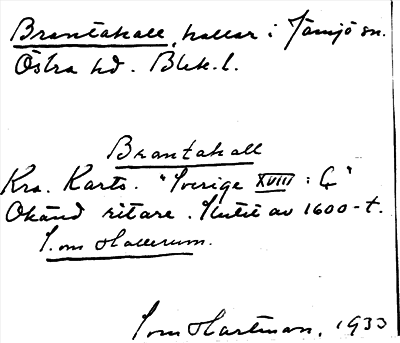 Brantahall, hallar i Jämjö sn.
Östra hd. Blek. l.
Brantahall
Kra. Karts. "Sverige XVIII : C"
Okänd ritare. Slutet av 1600-t.
S. om Hallerum.
Hartman, 1933